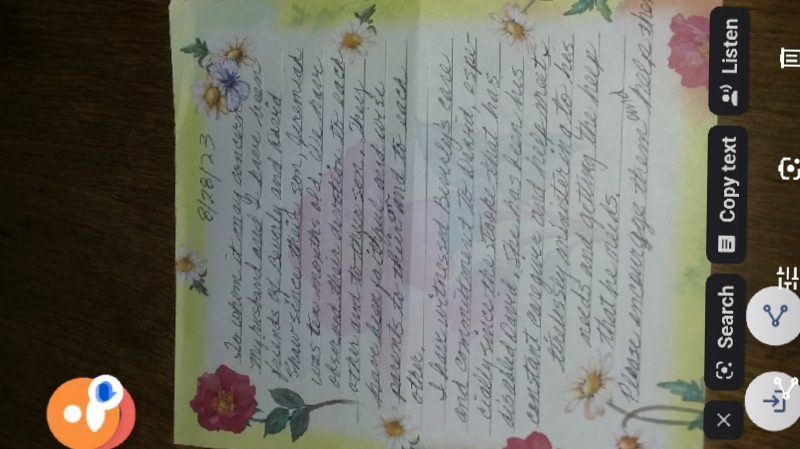 8/28/23
To whom it may concern
My husband and I have been
friends of Beverly and David
Shaw since their son, Jeremiah
was ten months old. We have
observed their devotion to each
other and to their son. They
have been faithful and wise
parents to their son and to each
other.
I have witnessed Beverly's care
and commitment to David espe-
cially since the stroke that has
disabled David. She has been his
constant caregiver and help meet,
tirelessly ministering to his
needs and getting the help
that he needs.
Please encourage them and help them
Listen
Copy text
Search